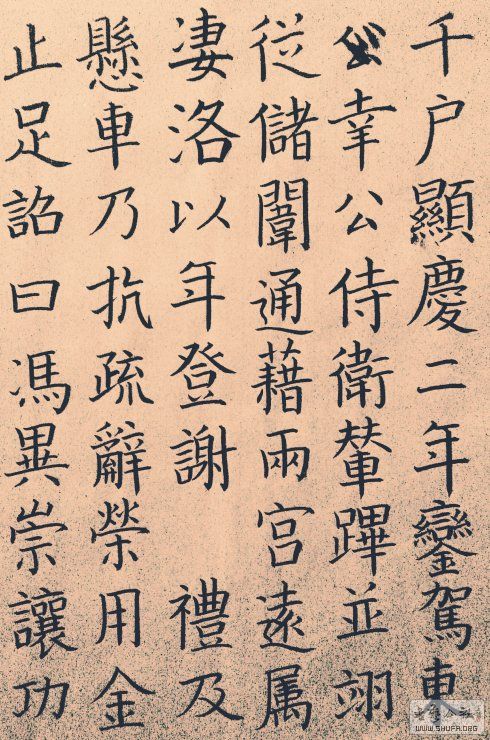 千户顯慶二年鑾駕東
幸公侍衛輦蹕並翊
從儲闈通藉兩宫遠属
凄洛以年登謝 禮及
懸車乃抗疏辭榮用金
止足詔曰馮異崇讓功
WWW.SHUFA.ORG